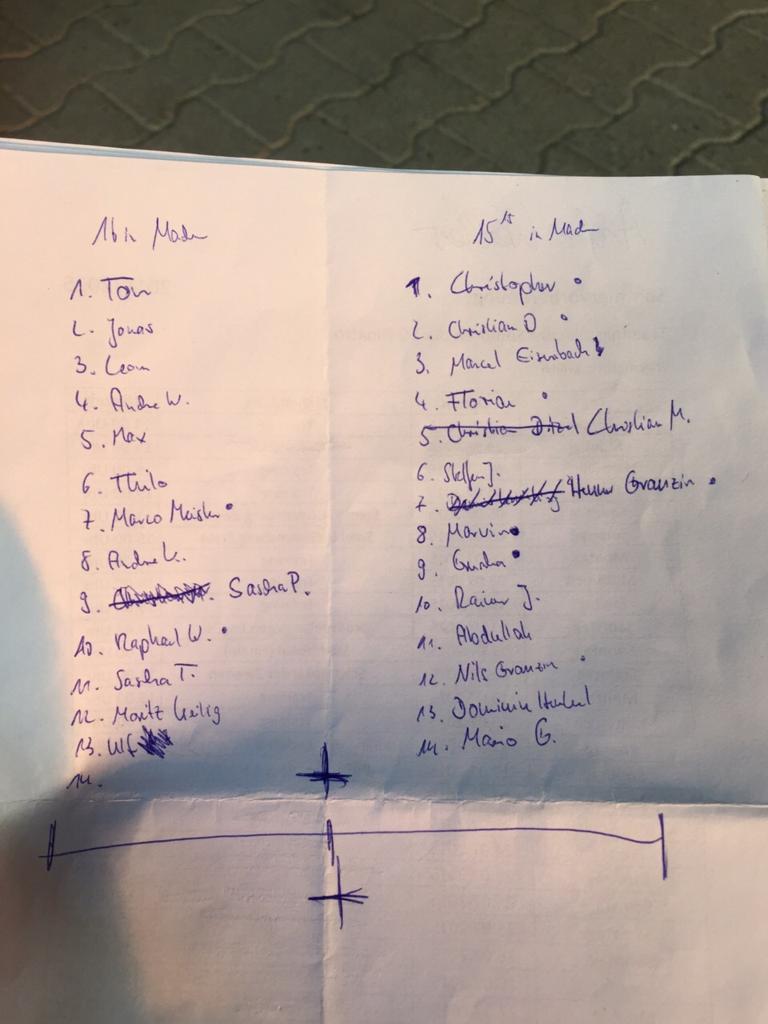 16 in Maden
1. Tom
2. Jonas
3. Leon
4. Andre W.
5. Max
6. Thilo
7. Marco Meister
8. Andre K.
9. Sascha P.
10. Raphael W.
11. Sascha T.
12. Moritz Heilig
13. Ulf
14.
15 in Maden
1. Christopher
2. Christian D
3. Marcel Eisenbach
4. Florian
5. Christian Ditzel Christian M.
6. Steffen J.
7. Granzin
8. Marvin
9. Gunther
10. Rainer J.
11. Abdullah
12. Nils Granzin
13. Dominik
14. Mario G.